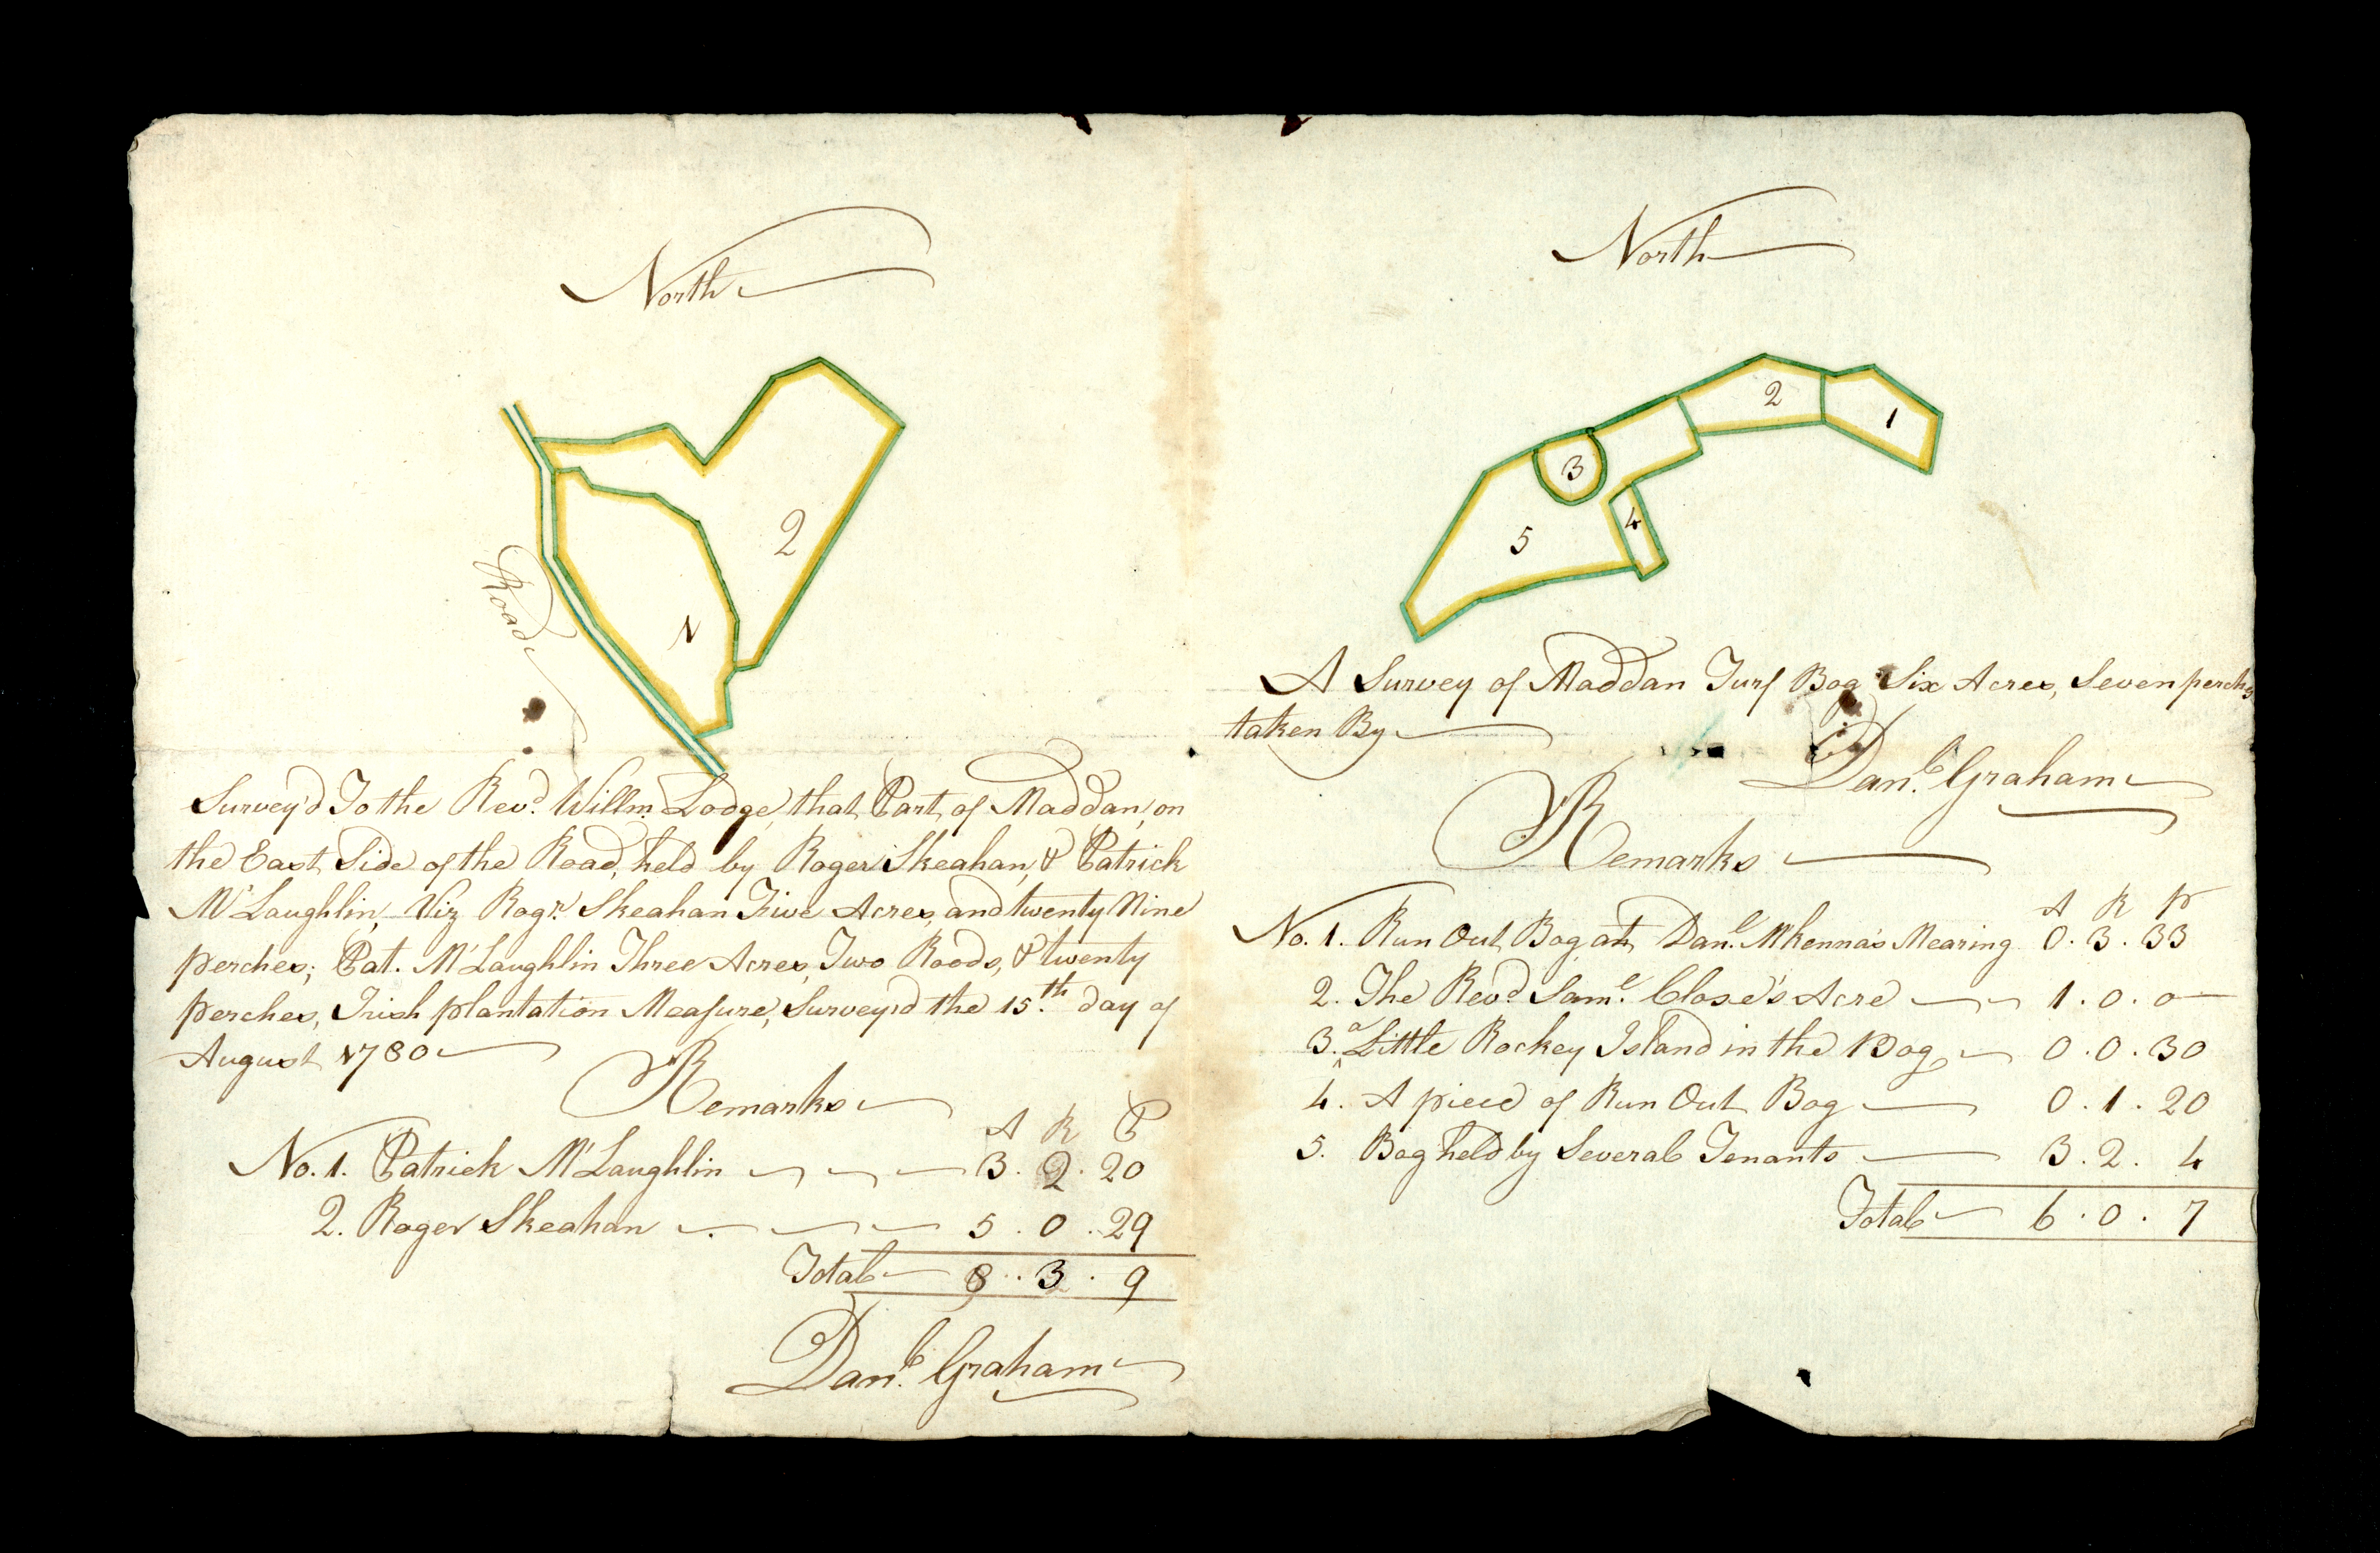 North
2
1
Road
Survey'd To the Revd. Willm. Lodge, that Part of Maddan, on
the East Side of the Road, held by Roger Skeahan, & Patrick
McLaughlin, Viz Rogr. Skeahan Five Acres, and twenty Nine
perches; Pat. McLaughlin Three Acres, Two Roods, & twenty
perches, Irish plantation Measure, Survey'd the 15th. day of
August 1780
Remarks
A R P
No. 1. Patrick McLaughlin 3. 2. 20
2. Roger Skeahan 5. 0. 29
Total 8. 3. 9
Danl. Graham
North
2
1
3
4
5
A Survey of Maddan Turf Bog Six Acres, Seven perchs
taken By
Danl. Graham
Remarks
A R P
No. 1. Run Out Bog, at Danl. McKenna's Mearing 0. 3. 33
2. The Revd Saml. Close's Acre 1. 0. 0
3. a Little Rockey Island in the Bog 0. 0. 30
4. A piece of Run Out Bog 0. 1. 20
5. Bog held by Several Tenants 3. 2. 4
Total 6. 0. 7